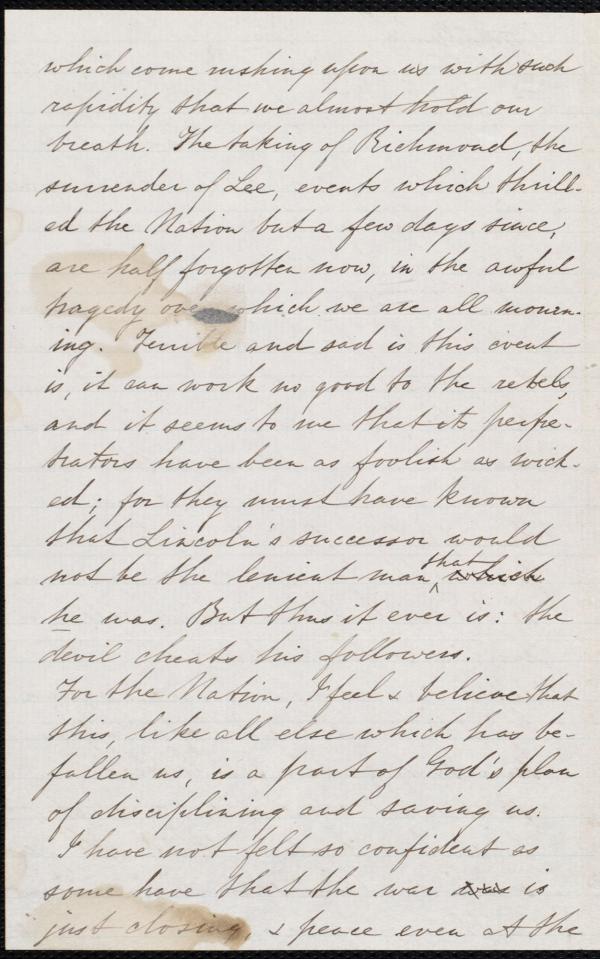 which come rushing upon us with such
rapidity that we almost hold our
breath. The taking of Richmond, the
surrender of Lee, events which thrill-
ed the Nation but a few days since,
are half forgotten now, in the awful
tragedy over which we are all mourn-
ing. Terrible and sad is this event
is, it can work no good to the rebels,
and it seems to me that its perpe-
trators have been as foolish as wick-
ed; for they must have known
that Lincoln's successor would
not be the lenient man that which
he was. But thus it ever is: the
devil cheats his followers.
For the Nation, I feel & believe that
this, like all else which has be-
fallen us, is a part of God's plan
of disciplining and saving us.
I have not felt so confident as
some have that the war was is
just closing, & peace even at the